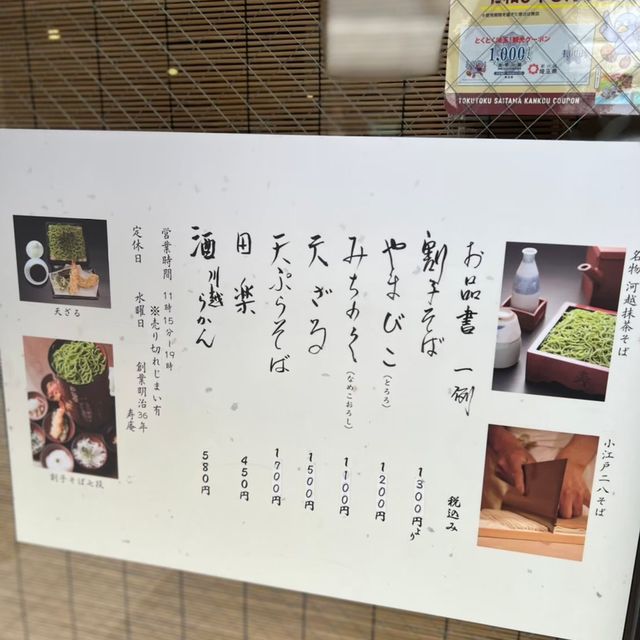 とくとく埼玉!観光クーポン
1,000
TOKUTOKU SAITAMA KANKOU COUPON
名物 河越抹茶そば
小江戸二八そば
お品書 一例
税込み
割子そば 1300円より
やまびこ(とろろ) 1200円
みちのく(なめこおろし) 1100円
天ざる 1500円
天ぷらそば 1700円
田楽 450円
酒 川越 らかん 580円
営業時間 11時15分~19時
※売り切れじまい有
定休日 水曜日 創業明治36年
寿庵
天ざる
割子そば七段